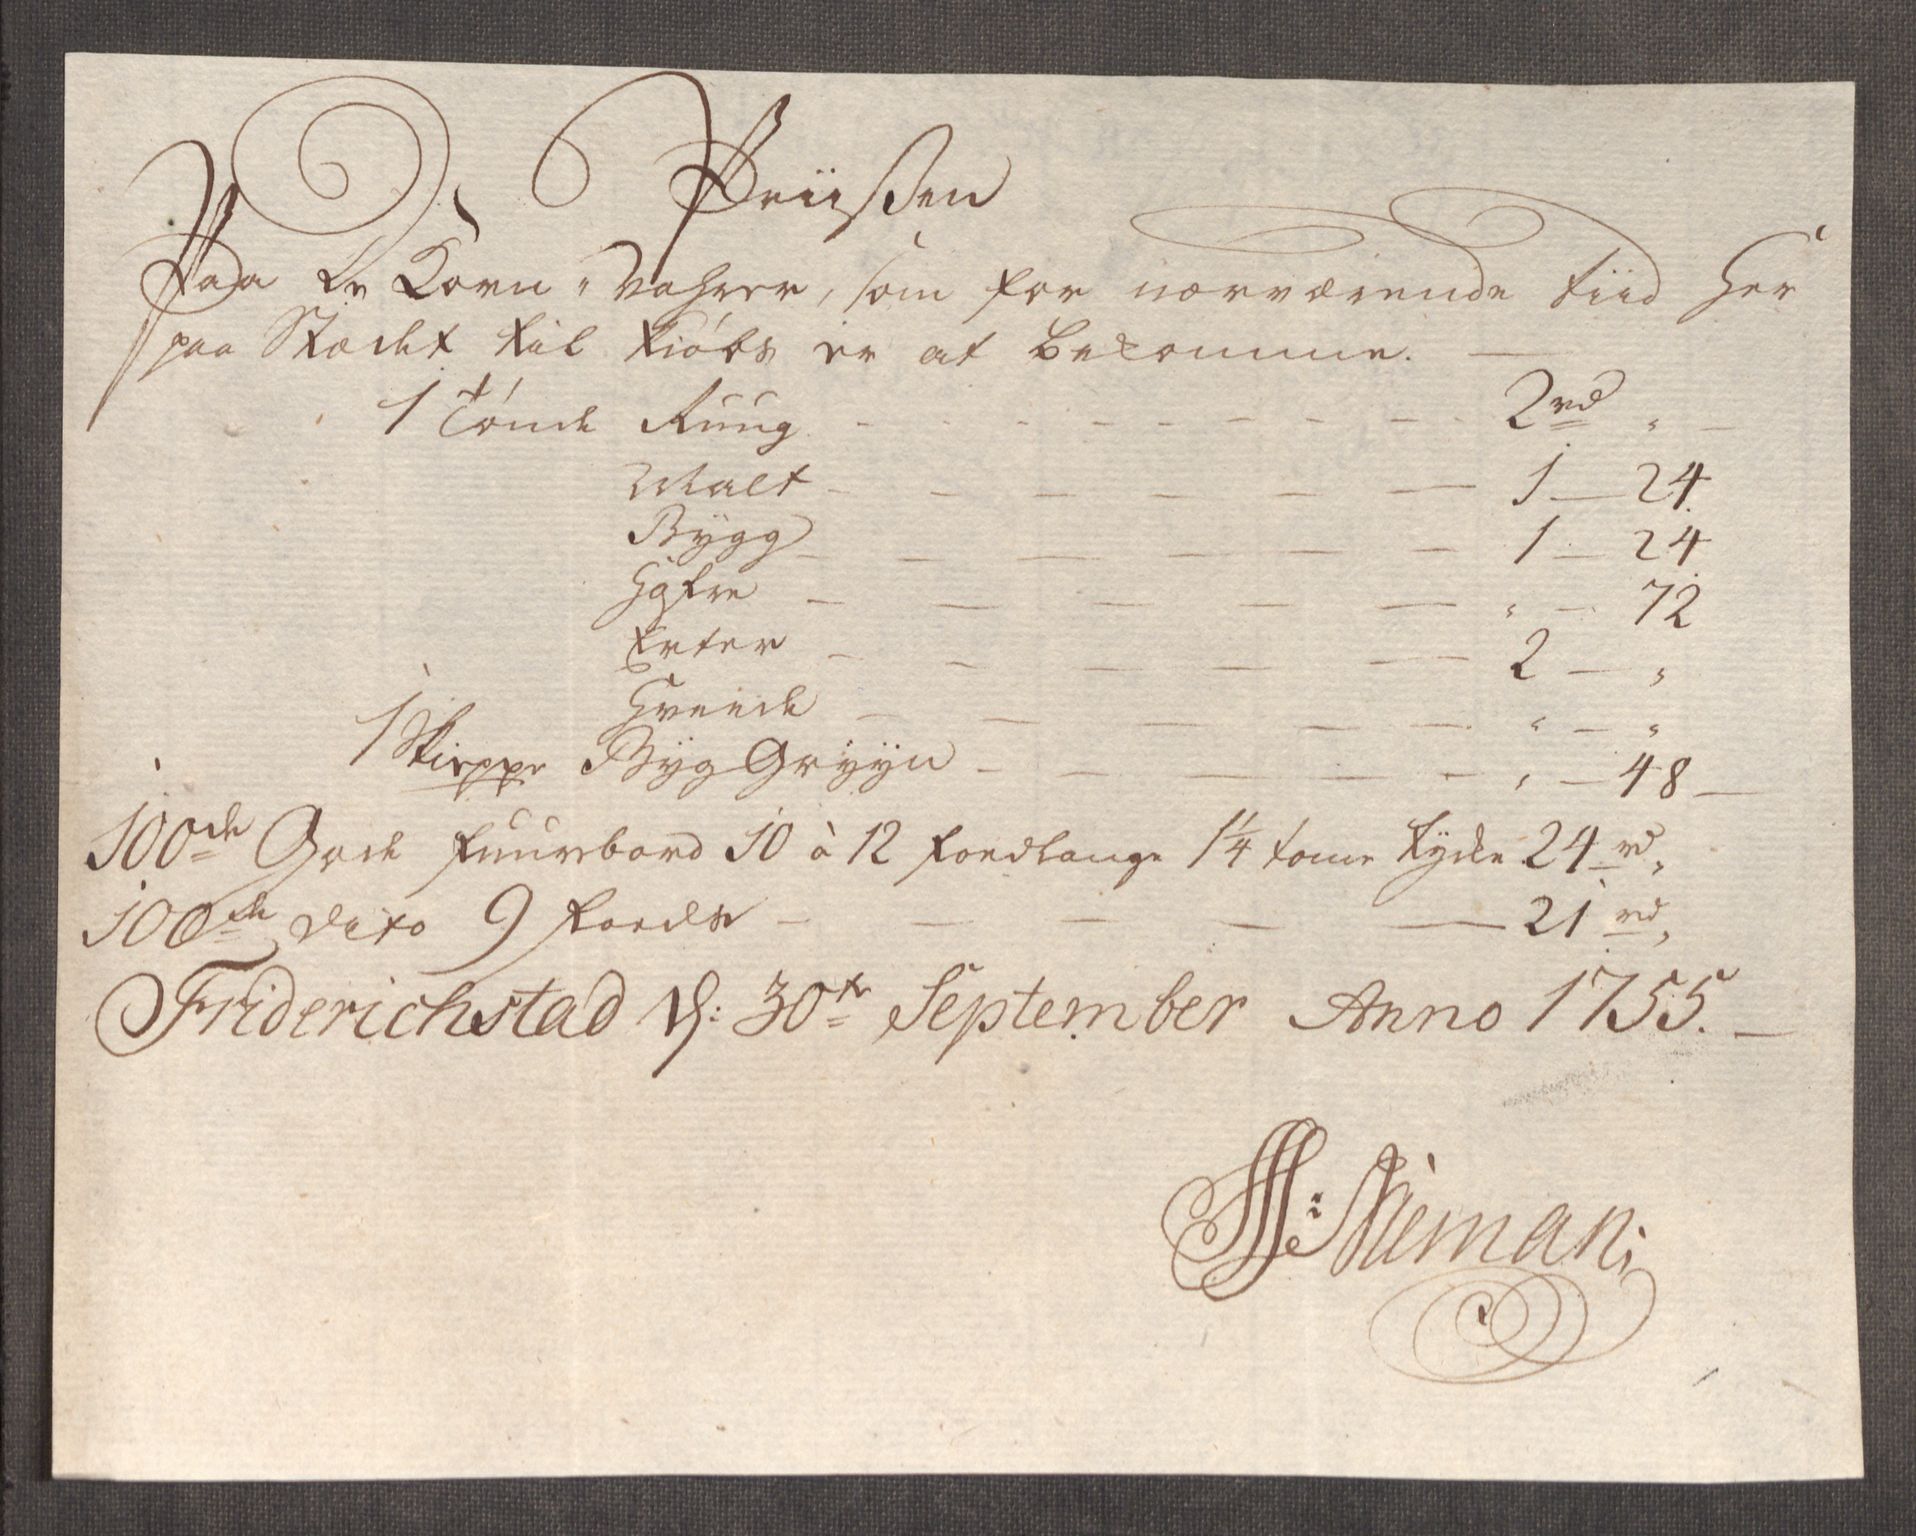 Priisen
Paa de Korn-vahrer, som for nærværende tiid her
paa Stædet till kiøbs er at bekomme.
1 Tønde Ruug 2 rd "
Malt 1 24
Bÿgg 1 24
Hafre " 72
Erter 2 "
Hveede " "
1 Skieppe Bÿg Grÿÿn " 48
100de Gode fuurebord 10 à 12 foedlange 1¼ tome tÿcke 24 rd "
100de dito 9 foeds 21 rd "
Friderichstad d: 30te September Anno 1755.
Nieman